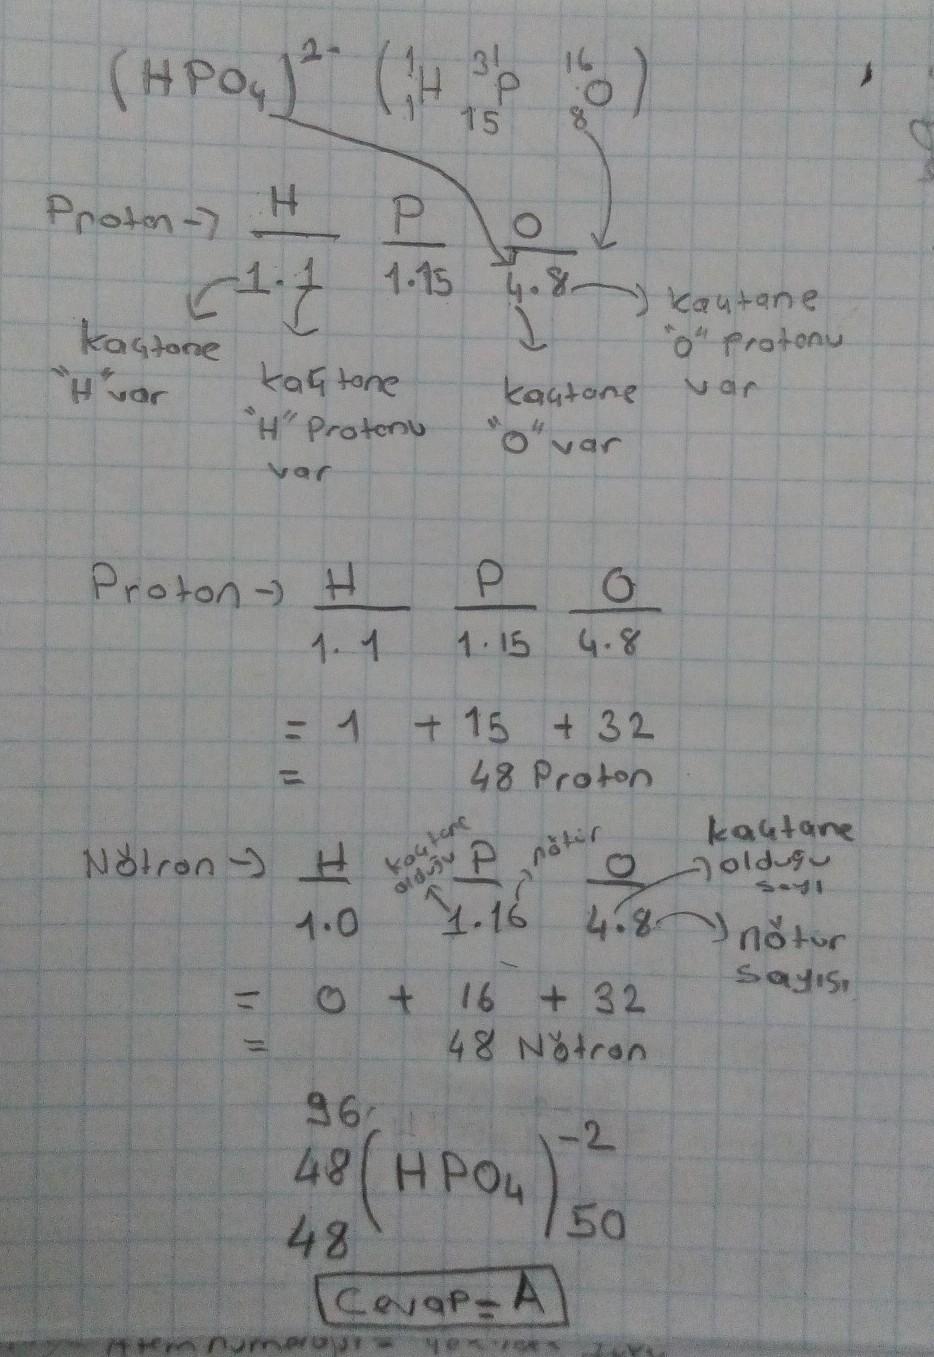 (HPO₄)²⁻ (¹₁H ³¹₁₅P ¹⁶₈O)
Proton → H P O
1.1 1.15 4.8
kaçtane "H" var
kaçtane "H" Protonu var
kaçtane "O" var
kaçtane "O" Protonu var
Proton → H P O
1.1 1.15 4.8
= 1 + 15 + 32
= 48 Proton
Nötron → H P O
1.0 1.16 4.8
kaçtane olduğu
nötür
kaçtane olduğu sayı
nötür sayısı
= 0 + 16 + 32
= 48 Nötron
96
48 (HPO₄)⁻²
48 50
Cevap = A